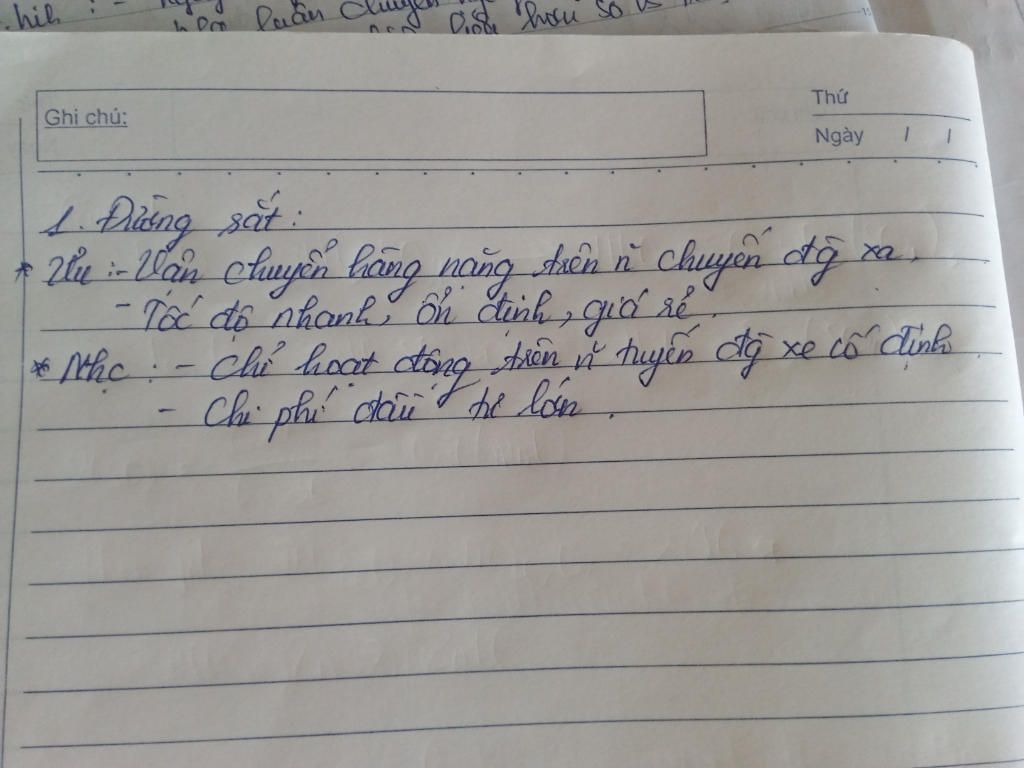 luân chuyển
Ghi chú:
Thứ
Ngày / /
1. Đường sắt:
* Ưu :- Vận chuyển hàng nặng trên n~ chuyến đg` xa.
- Tốc độ nhanh, ổn định, giá rẻ.
* Nhc : - Chỉ hoạt động trên n~ tuyến đg` xe cố định.
- Chi phí đầu tư lớn.